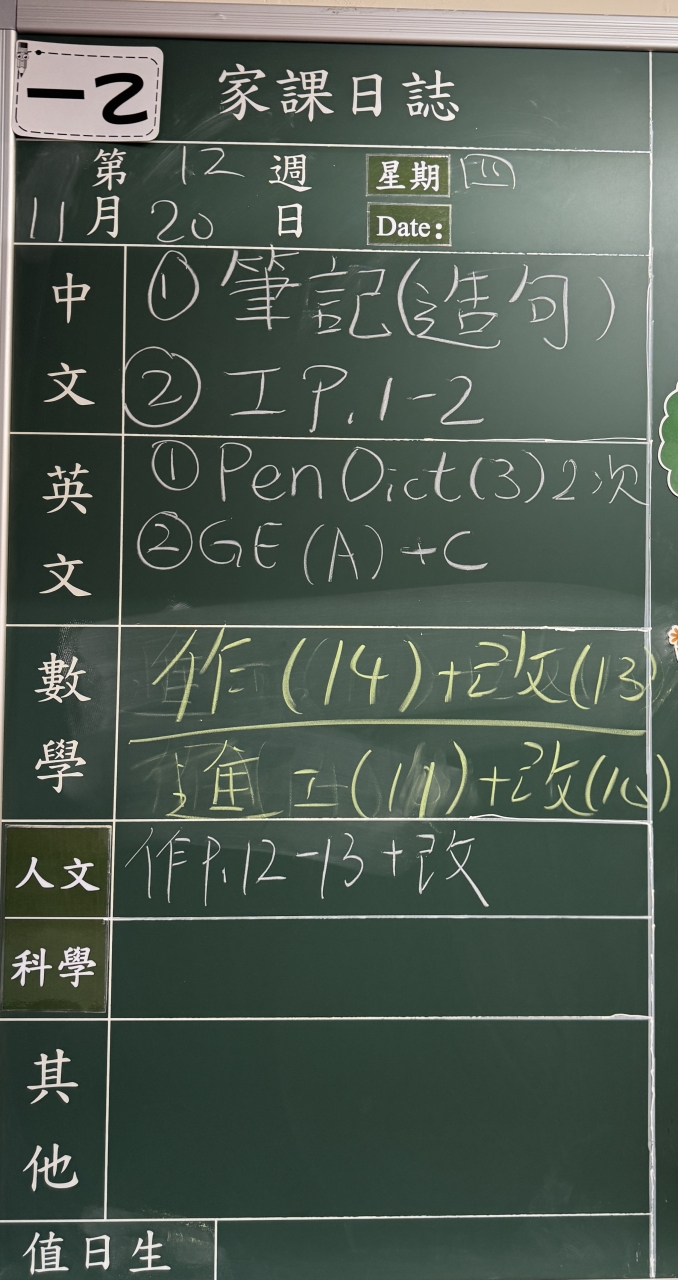 一乙
家課日誌
第 12 週 星期 四
11月 20 日 Date:
中文
① 筆記(造句)
② 工 P.1-2
英文
① Pen Dict(3) 2次
② GE (A) + C
數學
作 (14)+改(13)
工(11)+改(10)
人文
作P.12-13+改
科學
其他
值日生